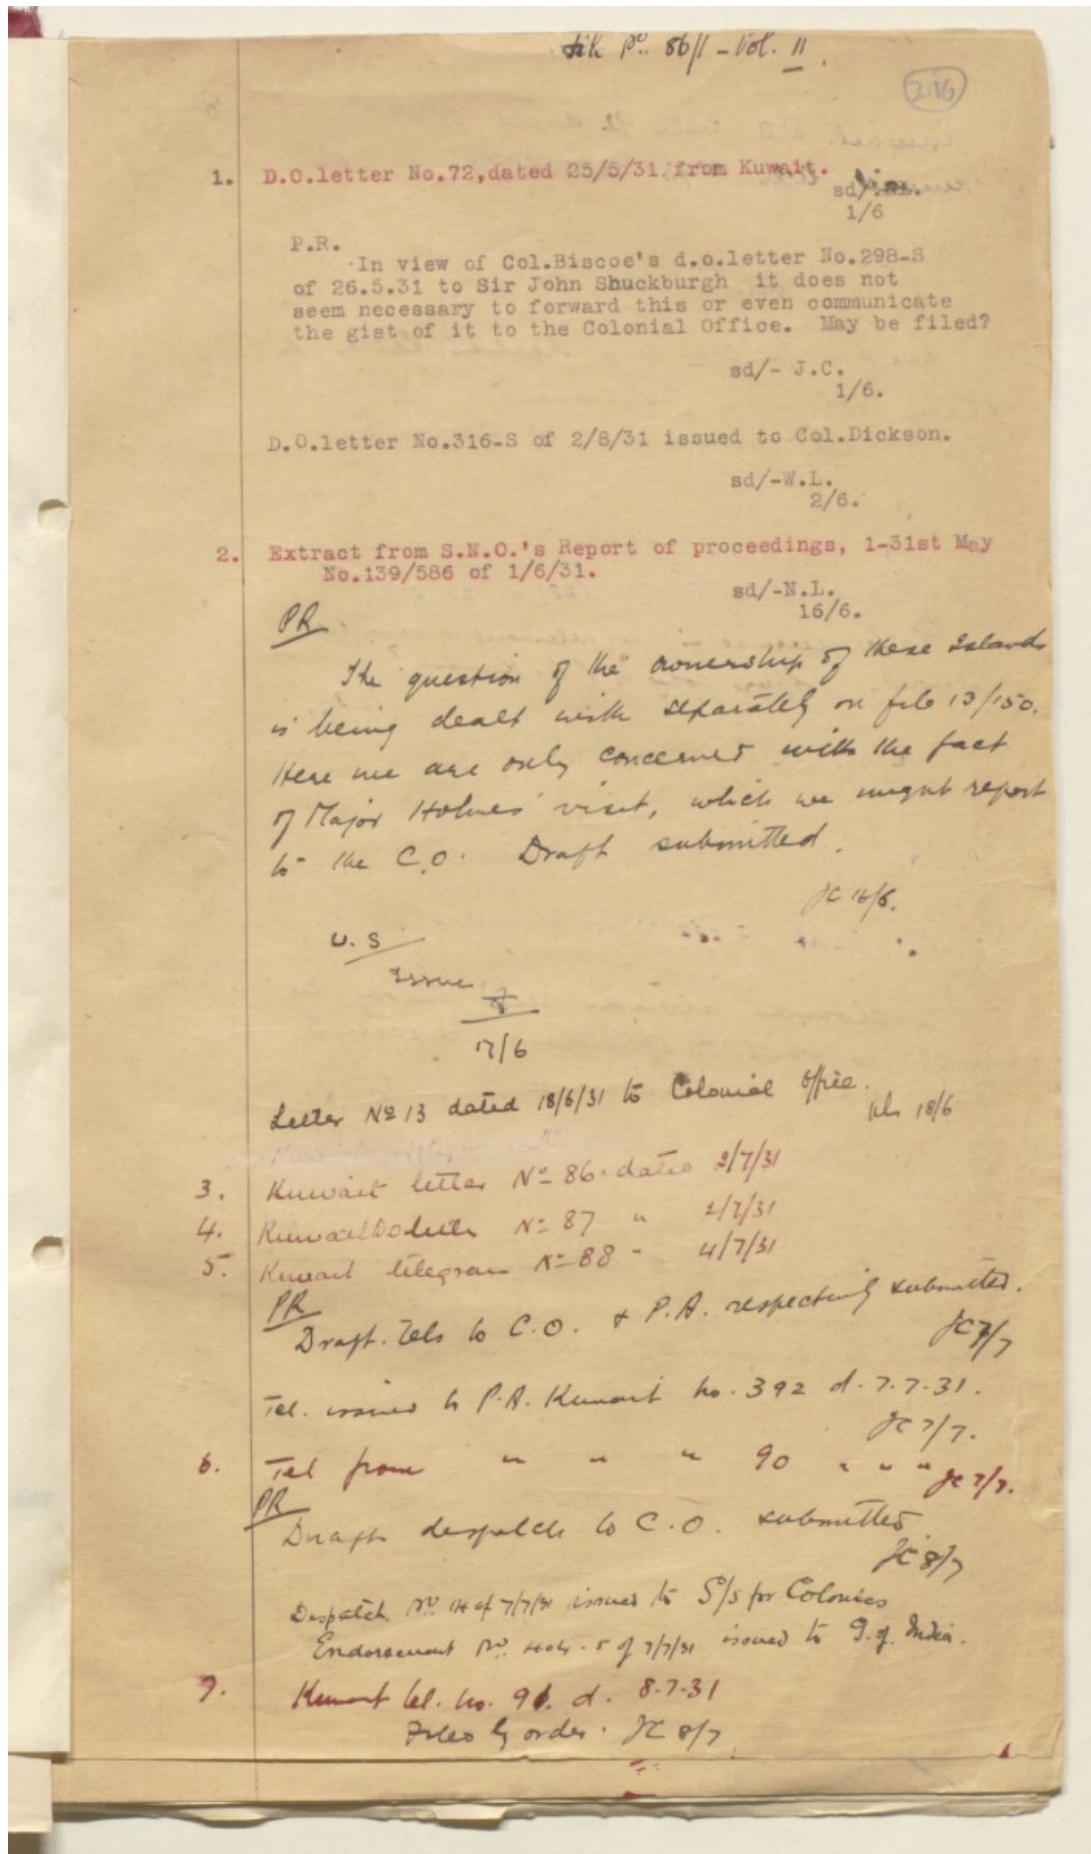 File No. 86/1 - Vol. II.
216
1. D.O.letter No.72,dated 25/5/31 from Kuwait.
sd/
1/6
P.R.
In view of Col.Biscoe's d.o.letter No.298-S
of 26.5.31 to Sir John Shuckburgh it does not
seem necessary to forward this or even communicate
the gist of it to the Colonial Office. May be filed?
sd/- J.C.
1/6.
D.O.letter No.316-S of 2/8/31 issued to Col.Dickson.
sd/-W.L.
2/6.
2. Extract from S.N.O.'s Report of proceedings, 1-31st May
No.139/586 of 1/6/31.
sd/-N.L.
16/6.
PR
The question of the ownership of these Islands
is being dealt with separately on file 13/150.
Here we are only concerned with the fact
of Major Holmes' visit, which we might report
to the C.O. Draft submitted.
JC 16/6.
U.S
Issue
17/6
Letter No 13 dated 18/6/31 to Colonial Office.
18/6
3. Kuwait letter No 86 dated 2/7/31
4. Kuwait DO letter No 87 " 2/7/31
5. Kuwait telegram No 88 " 4/7/31
PR
Draft. Tels to C.O. & P.A. respectively submitted.
JC 7/7
Tel. issued to P.A. Kuwait no. 392 d. 7.7.31.
JC 7/7.
6. Tel from " " " 90 " " " JC 7/7.
PR
Draft despatch to C.O. submitted
JC 8/7
Despatch No. 14 of 7/7/31 issued to S/S for Colonies
Endorsement No. of 7/7/31 issued to G. of India.
7. Kuwait tel. no. 91. d. 8.7.31
Filed by order. JC 8/7